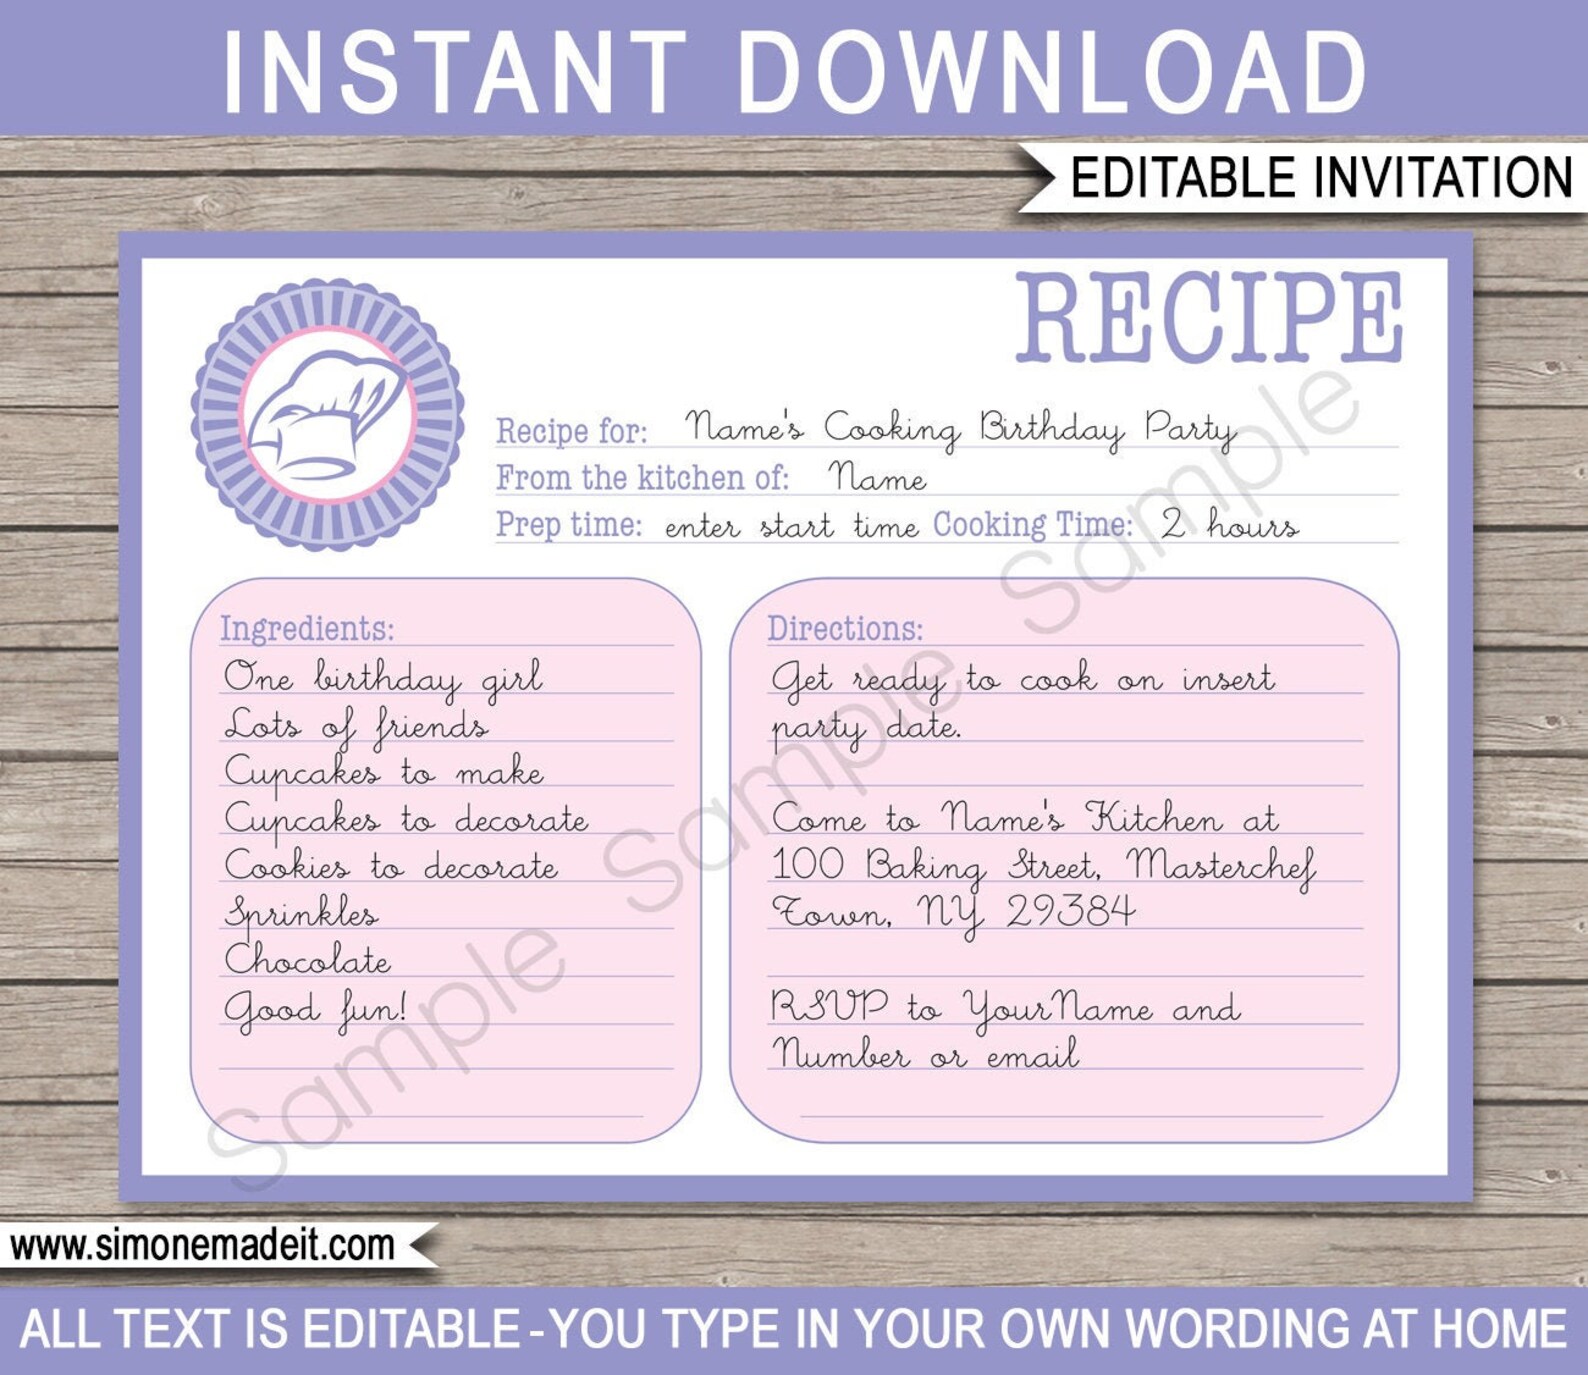 INSTANT DOWNLOAD
EDITABLE INVITATION
RECIPE
Recipe for: Name's Cooking Birthday Party
From the kitchen of: Name
Prep time: enter start time Cooking Time: 2 hours
Ingredients:
One birthday girl
Lots of friends
Cupcakes to make
Cupcakes to decorate
Cookies to decorate
Sprinkles
Chocolate
Good fun!
Directions:
Get ready to cook on insert
party date.
Come to Name's Kitchen at
100 Baking Street, Masterchef
Town, NY 29384
RSVP to YourName and
Number or email
Sample Sample Sample
www.simonemadeit.com
ALL TEXT IS EDITABLE - YOU TYPE IN YOUR OWN WORDING AT HOME